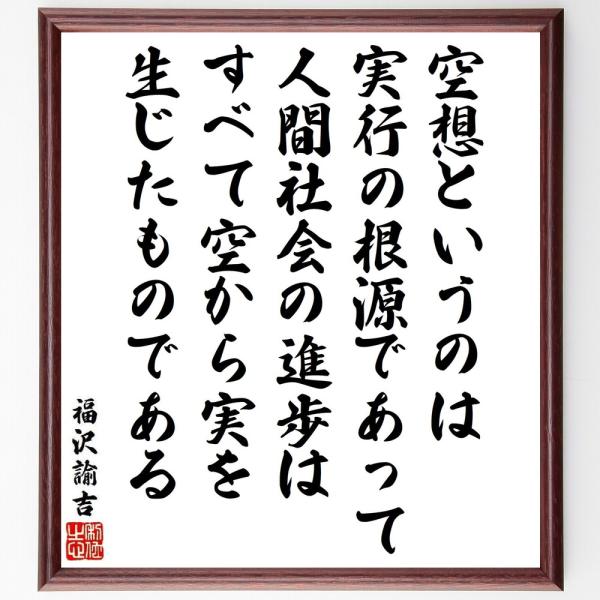 空想というのは
実行の根源であって
人間社会の進歩は
すべて空から実を
生じたものである
福沢諭吉